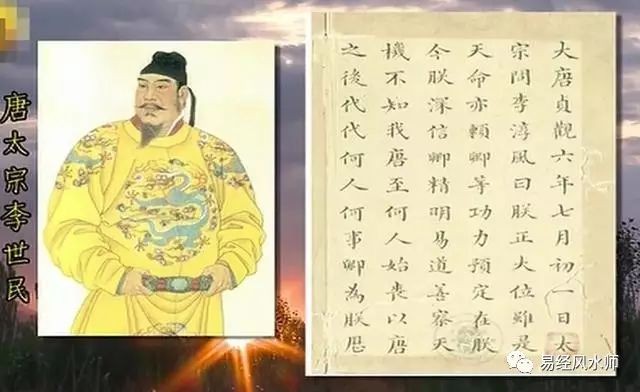 唐太宗李世民
大唐貞觀六年七月初一日太
宗問李淳風曰朕正大位雖是
天命亦賴卿等功力預定在朕
今朕深信卿精明易道善察天
機不知我唐至何人始喪以唐
之後代代何人何事卿為朕
易经风水师